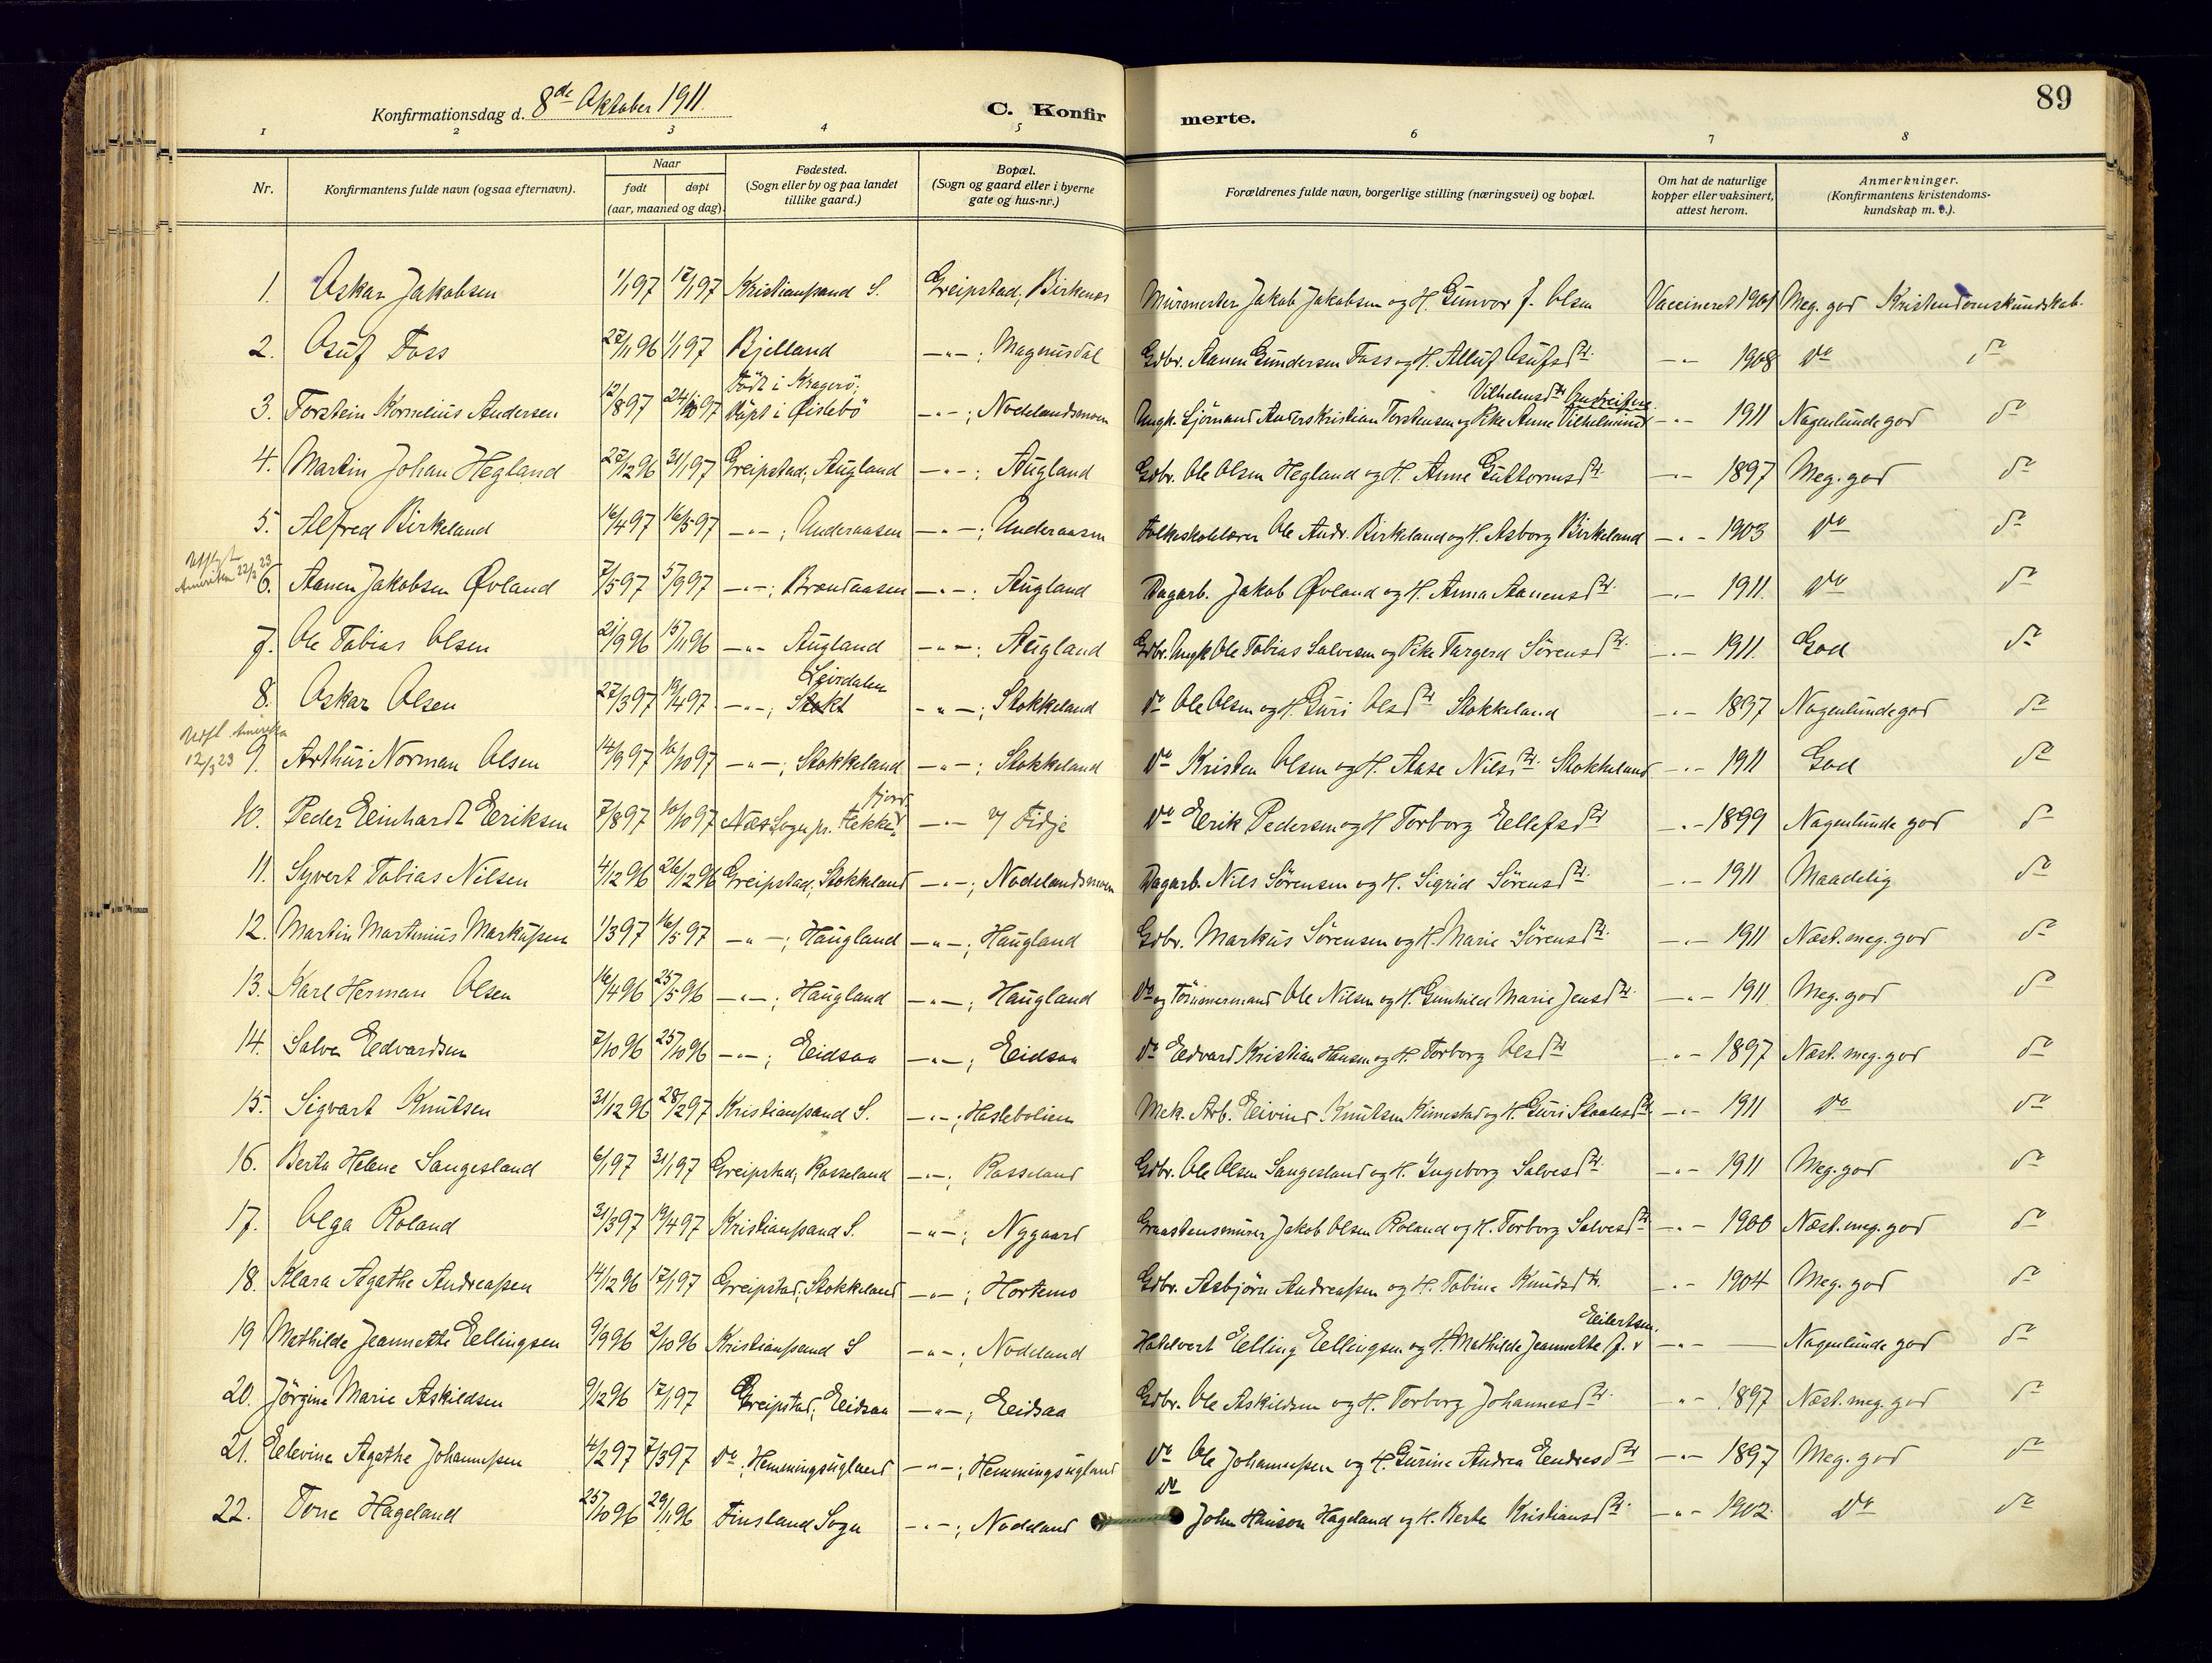 89
Konfirmationsdag d. 8de Oktober 1911.
C. Konfirmerte.
1 2 3 4 5 6 7 8
Nr. | Konfirmantens fulde navn (ogsaa efternavn). | Naar født døpt (aar, maaned og dag). | Fødested. (Sogn eller by og paa landet tillike gaard.) | Bopæl. (Sogn og gaard eller i byerne gate og hus-nr.) | Forældrenes fulde navn, borgerlige stilling (næringsvei) og bopæl. | Om hat de naturlige kopper eller vaksinert, attest herom. | Anmerkninger. (Konfirmantens kristendoms-kundskap m. v.).
1. Oskar Jakobsen | 1/1 97 | 17/1 97 | Kristianssand S. | Greipstad, Birkenes | Murmester Jakob Jakobsen og H. Gunvor f. Olsen | Vaccineret 1901 | Meg. god Kristendomskundskab.
2. Osuf Foss | 22/11 96 | 1/1 97 | Bjelland | —"—; Magnusdal | Gdbr. Aanen Gundersen Foss og H. Alluf Osufsdtr. | —"— 1908 | do do
3. Torstein Kornelius Andersen | 12/8 97 | 24/10 97 | Født i Kragerö; Döpt i Øislebö | —"—; Nodelandsmoen | Ungk. Sjömand Anders Kristian Torstensen og Pike Anne Vilhelmine Vilhelmsdtr Andreasen | —"— 1911 | Nogenlunde god do
4. Martin Johan Hegland | 27/12 96 | 31/1 97 | Greipstad; Augland | —"—; Augland | Gdbr. Ole Olsen Hegland og H. Anne Guttormsdtr. | —"— 1897 | Meg. god do
5. Alfred Birkeland | 16/4 97 | 16/5 97 | —"—; Underaasen | —"—; Underaasen | Folkeskolelærer Ole Andr. Birkeland og H. Asborg Birkeland | —"— 1903 | do do
Utflyt Amerika 22/2 23
6. Aanen Jakobsen Øvland | 7/5 97 | 5/9 97 | —"—; Brændaasen | —"—; Augland | Dagarb. Jakob Øvland og H. Anna Aanensdtr. | —"— 1911. | do do
7. Ole Tobias Olsen | 21/9 96 | 15/11 96 | —"— Augland | —"—; Augland | Gdbr. Ungk Ole Tobias Salvesen og Pike Targerd Sörensdtr. | —"— 1911. | God do
8. Oskar Olsen | 27/3 97 | 19/4 97 | —"—; Stokk Leirdalen | —"—; Stokkeland | do Ole Olsen og H. Guri Olsdtr Stokkeland | —"— 1897 | Nogenlunde god do
Utfl. Amerika 12/3 23
9. Arthur Norman Olsen | 14/9 97 | 10/10 97 | —"—; Stokkeland | —"—; Stokkeland | do Kristen Olsen og H. Aase Nilsdtr. Stokkeland | —"— 1911 | God do
10. Peder Einhardt Eriksen | 7/8 97 | 10/10 97 | Næs Sogn pr. Fekkefjord | —"— Fidje | do Erik Pedersen og H Torborg Ellefsdtr | —"— 1899 | Nogenlunde god do
11. Syvert Tobias Nilsen | 4/12 96 | 26/12 96 | Greipstad; Stokkeland | —"—; Nodelandsmoen | Dagarb. Nils Sörensen og H. Sigrid Sörensdtr. | —"— 1911 | Maadelig do
12. Martin Martinius Markussen | 1/3 97 | 16/5 97 | —"—; Haugland | —"—; Haugland | Gdbr. Markus Sörensen og H. Marie Sörensdtr. | —"— 1911 | Næst. meg. god do
13. Karl Herman Olsen | 16/4 96 | 25/5 96 | —"—; Haugland | —"—; Haugland | do og Tömmermand Ole Nilsen og H. Gunhild Marie Jensdtr. | —"— 1911 | Meg. god do
14. Salve Edvardsen | 7/10 96 | 25/10 96 | —"—; Eidsaa | —"—; Eidsaa | do Edvard Kristian Hansen og H Torborg Olsdtr | —"— 1897 | Næst. meg. god do
15. Sigvart Knutsen | 31/12 96 | 28/2 97 | Kristianssand S. | —"—; Haslebolien | Mek. Arb. Eivind Knutsen Kimestad og H. Guri Staalesdtr | —"— 1911 | do do
16. Berta Helene Sangesland | 6/1 97 | 31/1 97 | Greipstad, Rosseland | —"—; Rosseland | Gdbr. Ole Olsen Sangesland og H. Ingeborg Salvesdtr. | —"— 1911 | Meg. god do
17. Olga Roland | 31/3 97 | 19/4 97 | Kristianssand S. | —"—; Nygaard | Graastensmurer Jakob Olsen Roland og H. Torborg Salvesdtr | —"— 1900 | Næst. meg. god do
18. Klara Agathe Andreassen | 14/12 96 | 17/1 97 | Greipstad, Stokkeland | —"—; Hortemo | Gdbr. Asbjörn Andreassen og H. Tobine Knudsdtr. | —"— 1904 | Meg. god do
19 Mathilde Jeannette Ellingsen | 9/9 96 | 2/10 96 | Kristianssand S | —"—; Nodeland | Hotelvert Elling Ellingsen og H. Mathilde Jeannette f. Eilertsen. | —"— — | Nogenlunde god do
20. Jörgine Marie Askildsen | 9/12 96 | 17/1 97 | Greipstad; Eidsaa | —"—; Eidsaa | Gdbr. Ole Askildsen og H. Torborg Johannesdtr. | —"— 1897 | Næst. meg. god do
21. Elevine Agathe Johannessen | 4/2 97 | 7/3 97 | do; Hemmingsugland | —"—; Hemmingsugland | do Ole Johannessen og H. Gurine Andrea Endresdtr | —"— 1897 | Meg. god do
22. Tone Hageland | 25/10 96 | 29/11 96 | Finsland Sogn | —"—; Nodeland | do John Hanson Hageland og H. Berte Kristiansdtr. | —"— 1902. | do do